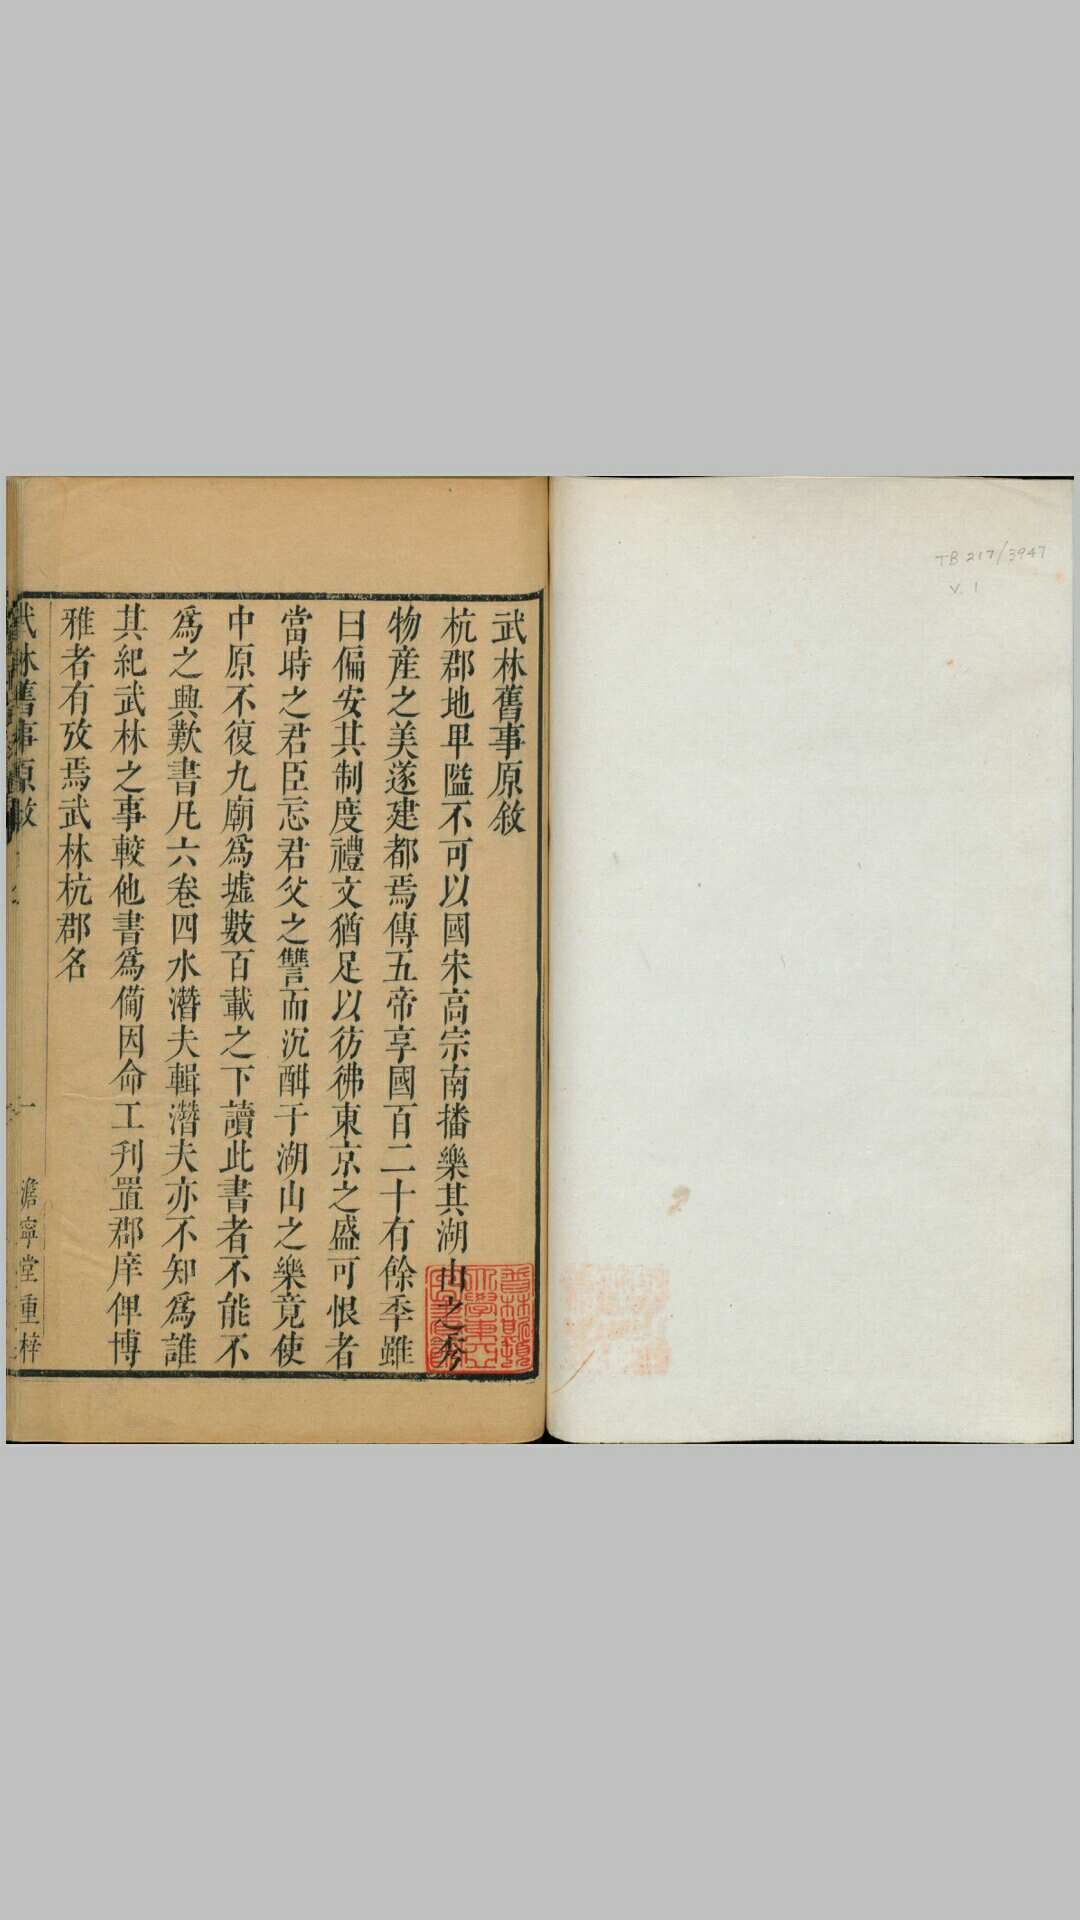 TB 217/3947
V. 1
武林舊事原敘
杭郡地卑隘不可以國宋高宗南播樂其湖山之秀
物產之美遂建都焉傳五帝享國百二十有餘季雖
曰偏安其制度禮文猶足以彷彿東京之盛可恨者
當時之君臣忘君父之讐而沉酣于湖山之樂竟使
中原不復九廟爲墟數百載之下讀此書者不能不
爲之興歎書凡六卷四水潛夫輯潛夫亦不知爲誰
其紀武林之事較他書爲備因命工刋置郡庠俾博
雅者有攷焉武林杭郡名
武林舊事原敘
一
澹寧堂重梓
普林斯頓
大學東亞
圖書館